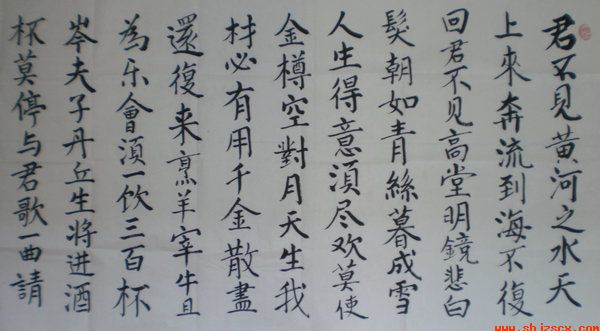 君不見黄河之水天
上來奔流到海不復
回君不见高堂明鏡悲白
髮朝如青絲暮成雪
人生得意須尽欢莫使
金樽空對月天生我
材必有用千金散盡
還復来烹羊宰牛且
為乐會須一饮三百杯
岑夫子丹丘生将进酒
杯莫停与君歌一曲請